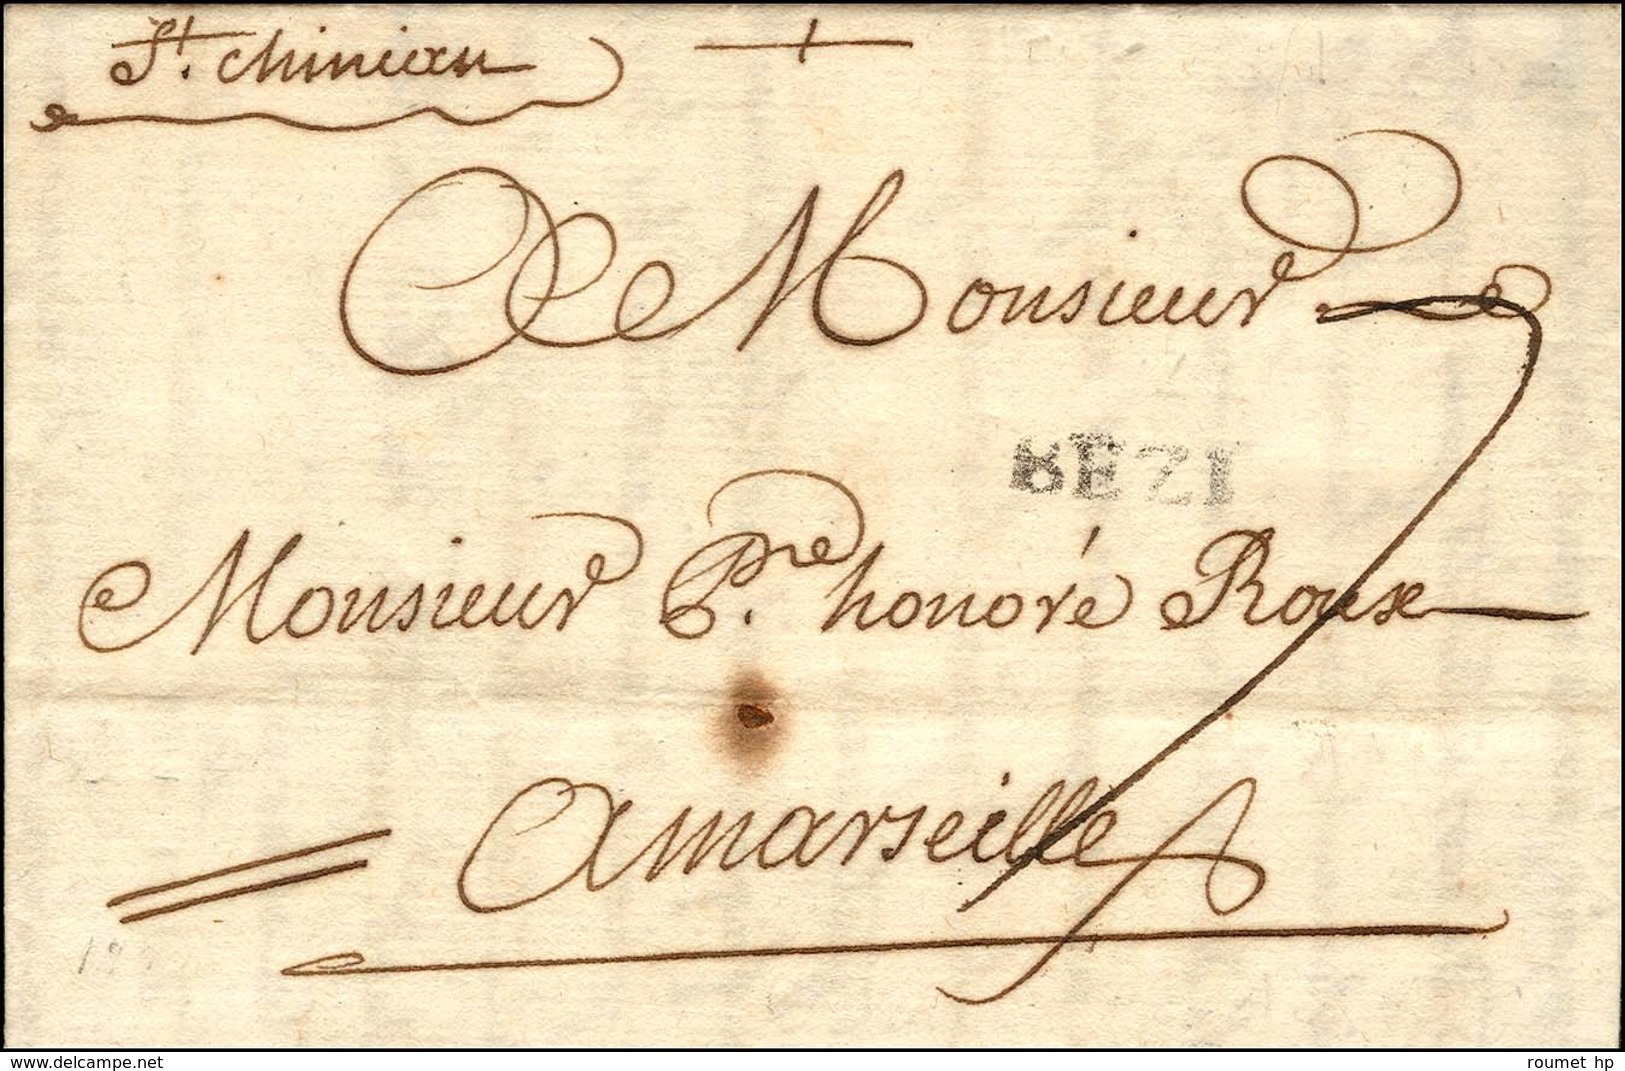 St. chinian
A Monsieur
BEZI
Monsieur Pre. honoré Roux
A marseille
7
www.delcampe.net
roumet hp